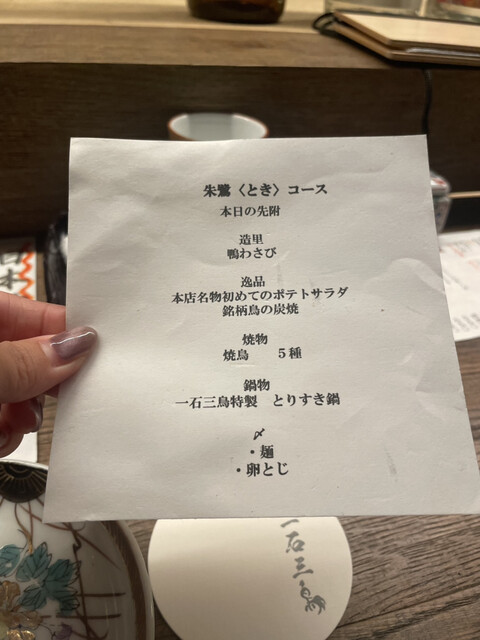 朱鷺〈とき〉コース
本日の先附
造里
鴨わさび
逸品
本店名物初めてのポテトサラダ
銘柄鳥の炭焼
焼物
焼鳥　　５種
鍋物
一石三鳥特製　とりすき鍋
〆
・麺
・卵とじ
一石三鳥